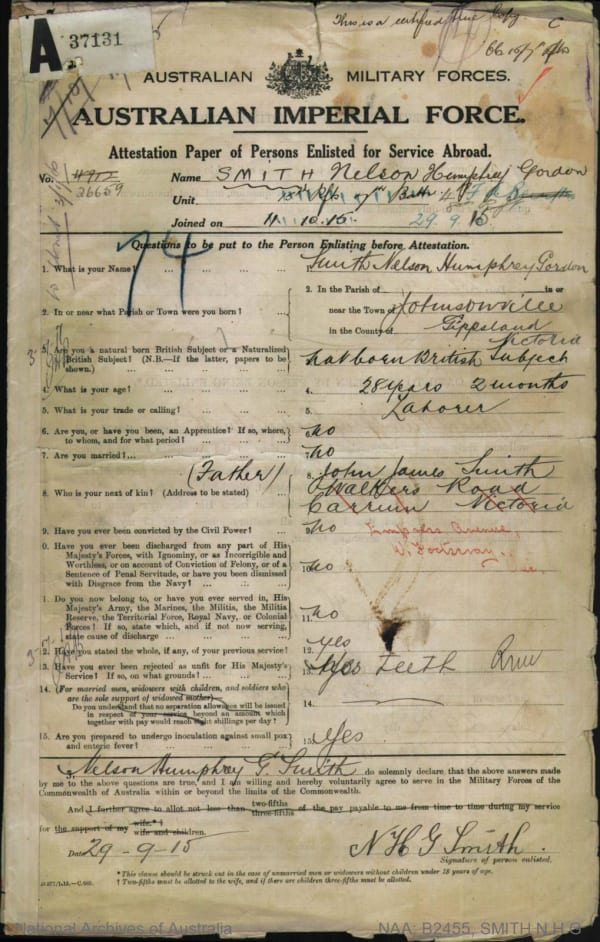 This is a certified True Copy
C
A 37131
AUSTRALIAN MILITARY FORCES.
AUSTRALIAN IMPERIAL FORCE.
Attestation Paper of Persons Enlisted for Service Abroad.
No. 26659 Name SMITH Nelson Humphrey Gordon
Unit
Joined on 11.10.15. 29.9.15
74
Questions to be put to the Person Enlisting before Attestation.
1. What is your Name? ... 1. Smith Nelson Humphrey Gordon
2. In or near what Parish or Town were you born? ... 2. In the Parish of in or
near the Town of Johnsonville
in the County of Gippsland
Victoria
3. Are you a natural born British Subject or a Naturalized
British Subject? (N.B.—If the latter, papers to be
shown.) Nat born British Subject
4. What is your age? ... 4. 28 years 2 months
5. What is your trade or calling? ... 5. Laborer
6. Are you, or have you been, an Apprentice? If so, where,
to whom, and for what period? ... 6. No
7. Are you married? ... 7. No
(Father)
8. Who is your next of kin? (Address to be stated) ... 8. John James Smith
Walkers Road
Carrum Victoria
9. Have you ever been convicted by the Civil Power? ... 9. No
Empress Avenue,
W. Footscray.
0. Have you ever been discharged from any part of His
Majesty's Forces, with Ignominy, or as Incorrigible and
Worthless, or on account of Conviction of Felony, or of a
Sentence of Penal Servitude, or have you been dismissed
with Disgrace from the Navy? ... 10. No
1. Do you now belong to, or have you ever served in, His
Majesty's Army, the Marines, the Militia, the Militia
Reserve, the Territorial Force, Royal Navy, or Colonial
Forces? If so, state which, and if not now serving,
state cause of discharge ... 11. No
2. Have you stated the whole, if any, of your previous service? 12. Yes
3. Have you ever been rejected as unfit for His Majesty's
Service? If so, on what grounds? ... 13. Yes Teeth
14. (For married men, widowers with children, and soldiers who
are the sole support of widowed mother)—
Do you understand that no separation allowance will be issued
in respect of your service beyond an amount which
together with pay would reach eight shillings per day? 14.
15. Are you prepared to undergo inoculation against small pox
and enteric fever? ... 15. Yes
I, Nelson Humphrey G. Smith do solemnly declare that the above answers made
by me to the above questions are true, and I am willing and hereby voluntarily agree to serve in the Military Forces of the
Commonwealth of Australia within or beyond the limits of the Commonwealth.
And I further agree to allot not less than two-fifths three-fifths of the pay payable to me from time to time during my service
for the support of my wife.* † wife and children.
Date 29-9-15 N H G Smith.
Signature of person enlisted.
* This clause should be struck out in the case of unmarried men or widowers without children under 18 years of age.
† Two-fifths must be allotted to the wife, and if there are children three-fifths must be allotted.
National Archives of Australia
NAA: B2455, SMITH N H G